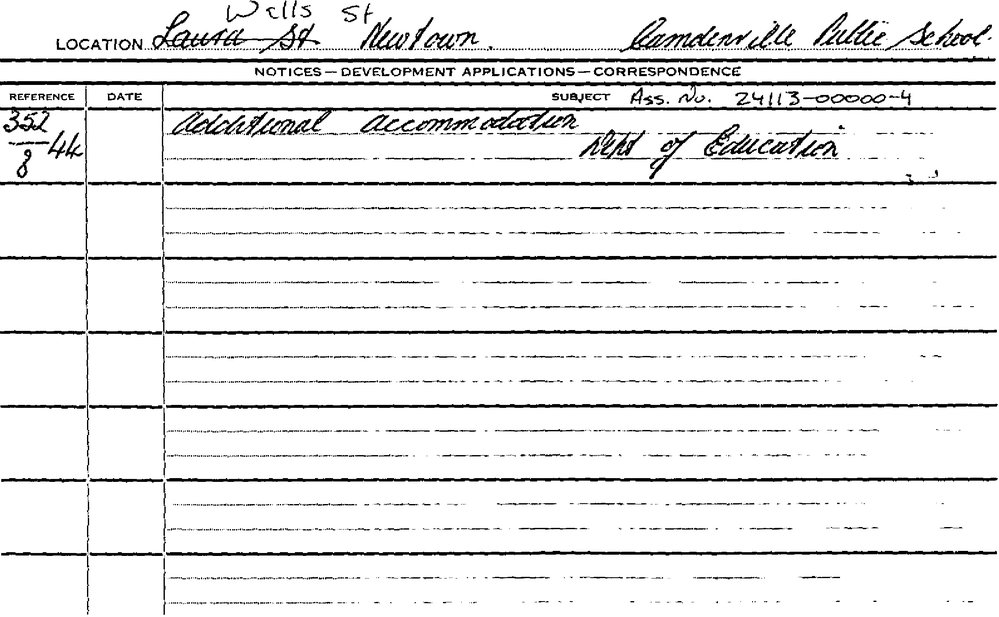 Wells St
LOCATION Laura St Newtown. Camdenville Public School.
NOTICES—DEVELOPMENT APPLICATIONS—CORRESPONDENCE
REFERENCE DATE SUBJECT Ass. No. 24113-00000-4
352 Additional Accommodation
8 44 Dept of Education